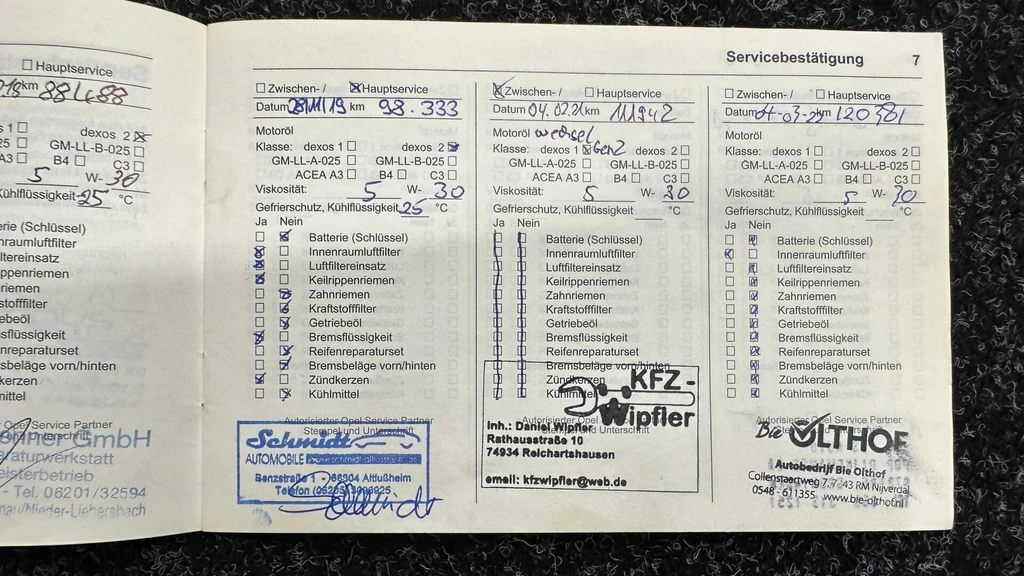 Servicebestätigung 7
Hauptservice
km 88488
dexos 2
GM-LL-B-025
A3 B4 C3
5 W-30
Kühlflüssigkeit 25 °C
filter
riemen
Bremsbeläge vorn/hinten
Opel Service Partner
Unterschrift
GmbH
Tel. 06201/32594
Zwischen-/ Hauptservice
Datum 28/11/19 km 98.333
Motoröl
Klasse: dexos 1 dexos 2
GM-LL-A-025 GM-LL-B-025
ACEA A3 B4 C3
Viskosität: 5 W- 30
Gefrierschutz, Kühlflüssigkeit 25 °C
Ja Nein
Batterie (Schlüssel)
Innenraumluftfilter
Luftfiltereinsatz
Keilrippenriemen
Zahnriemen
Kraftstofffilter
Getriebeöl
Bremsflüssigkeit
Reifenreparaturset
Bremsbeläge vorn/hinten
Zündkerzen
Kühlmittel
Autorisierter Opel Service Partner
Stempel und Unterschrift
Schmidt
AUTOMOBILE
Benzstraße 1 - 68804 Altlußheim
Telefon
Zwischen-/ Hauptservice
Datum 04.02.21 km 111942
Motoröl wechsel
Klasse: dexos 1 Gen2 dexos 2
GM-LL-A-025 GM-LL-B-025
ACEA A3 B4 C3
Viskosität: 5 W- 30
Gefrierschutz, Kühlflüssigkeit °C
Ja Nein
Batterie (Schlüssel)
Innenraumluftfilter
Luftfiltereinsatz
Keilrippenriemen
Zahnriemen
Kraftstofffilter
Getriebeöl
Bremsflüssigkeit
Reifenreparaturset
Bremsbeläge vorn/hinten
Zündkerzen
Kühlmittel
Autorisierter Opel Service Partner
Stempel und Unterschrift
KFZ-
Wipfler
Inh.: Daniel Wipfler
Rathausstraße 10
74934 Reichartshausen
email: kfzwipfler@web.de
Zwischen-/ Hauptservice
Datum km 120381
Motoröl
Klasse: dexos 1 dexos 2
GM-LL-A-025 GM-LL-B-025
ACEA A3 B4 C3
Viskosität: 5 W- 30
Gefrierschutz, Kühlflüssigkeit °C
Ja Nein
Batterie (Schlüssel)
Innenraumluftfilter
Luftfiltereinsatz
Keilrippenriemen
Zahnriemen
Kraftstofffilter
Getriebeöl
Bremsflüssigkeit
Reifenreparaturset
Bremsbeläge vorn/hinten
Zündkerzen
Kühlmittel
Autorisierter Opel Service Partner
Stempel und Unterschrift
Bie OLTHOF
Autobedrijf Bie Olthof
Collenstaartweg 7, 7443 RM Nijverdal
0548 - 611355 www.bie-olthof.nl